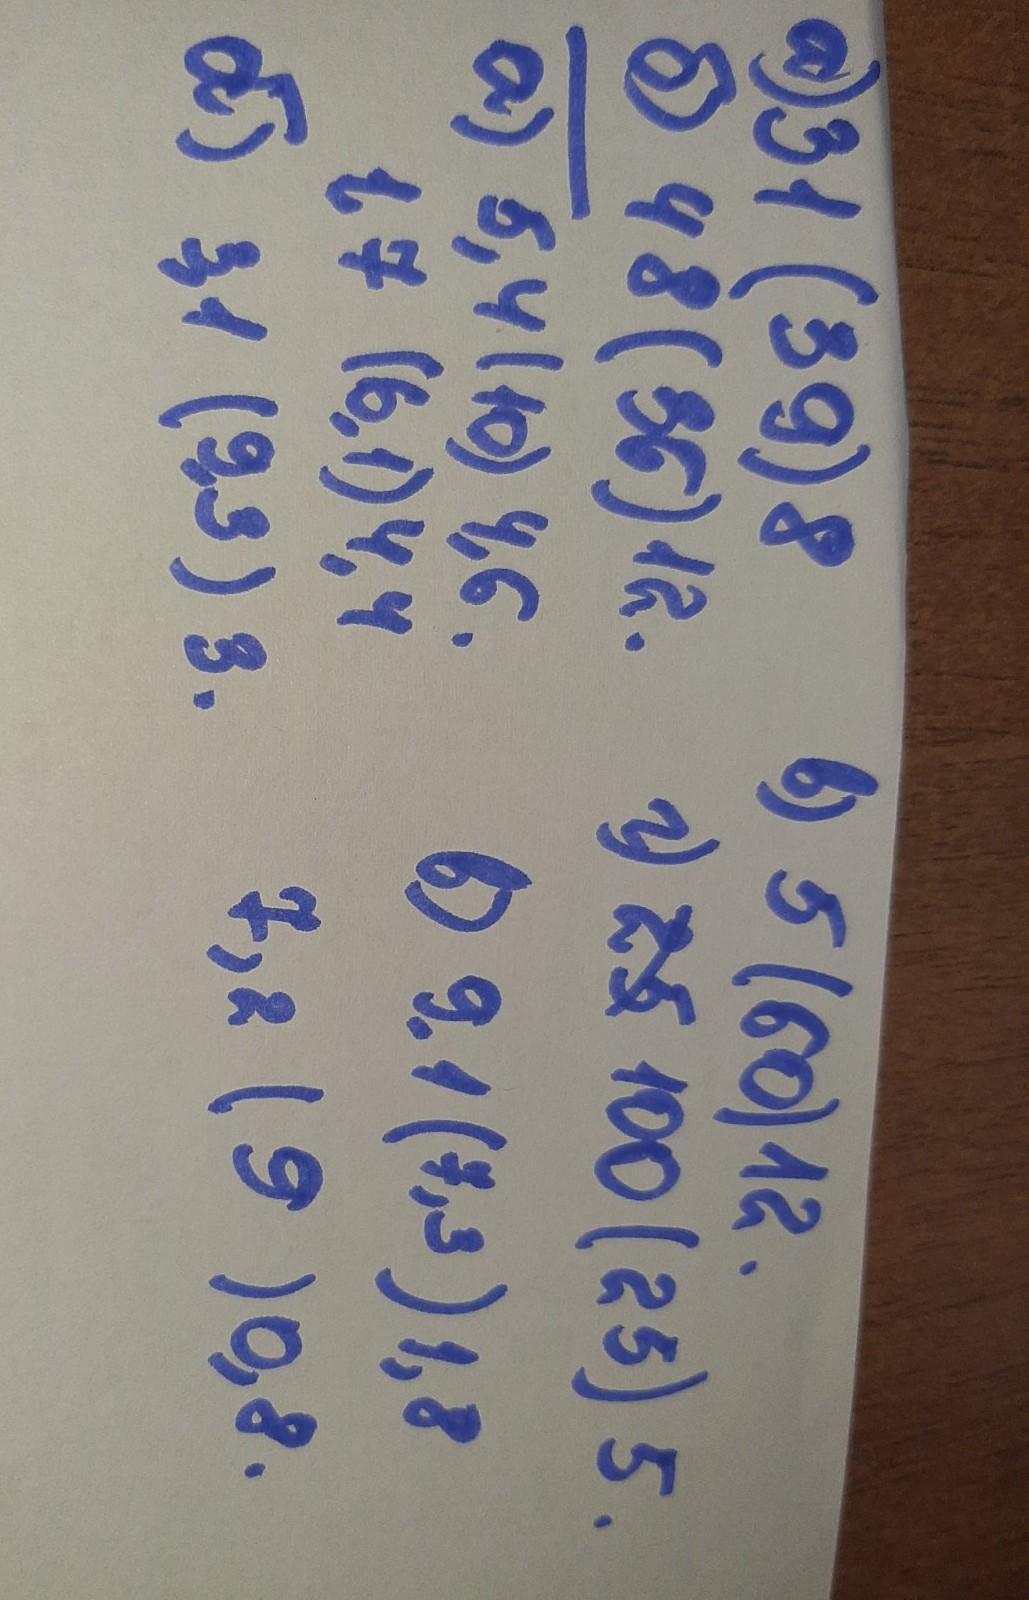 а) 31 (39) 8 в) 5 (60) 12.
б) 48 (36) 12. г) 100 (25) 5.
а) 5,4 (10) 4,6. в) 9.1 (7,3) 1,8
1,7 (6,1) 4,4
б) 3,1 (9,3) 3. 7,2 (9) 0,8.